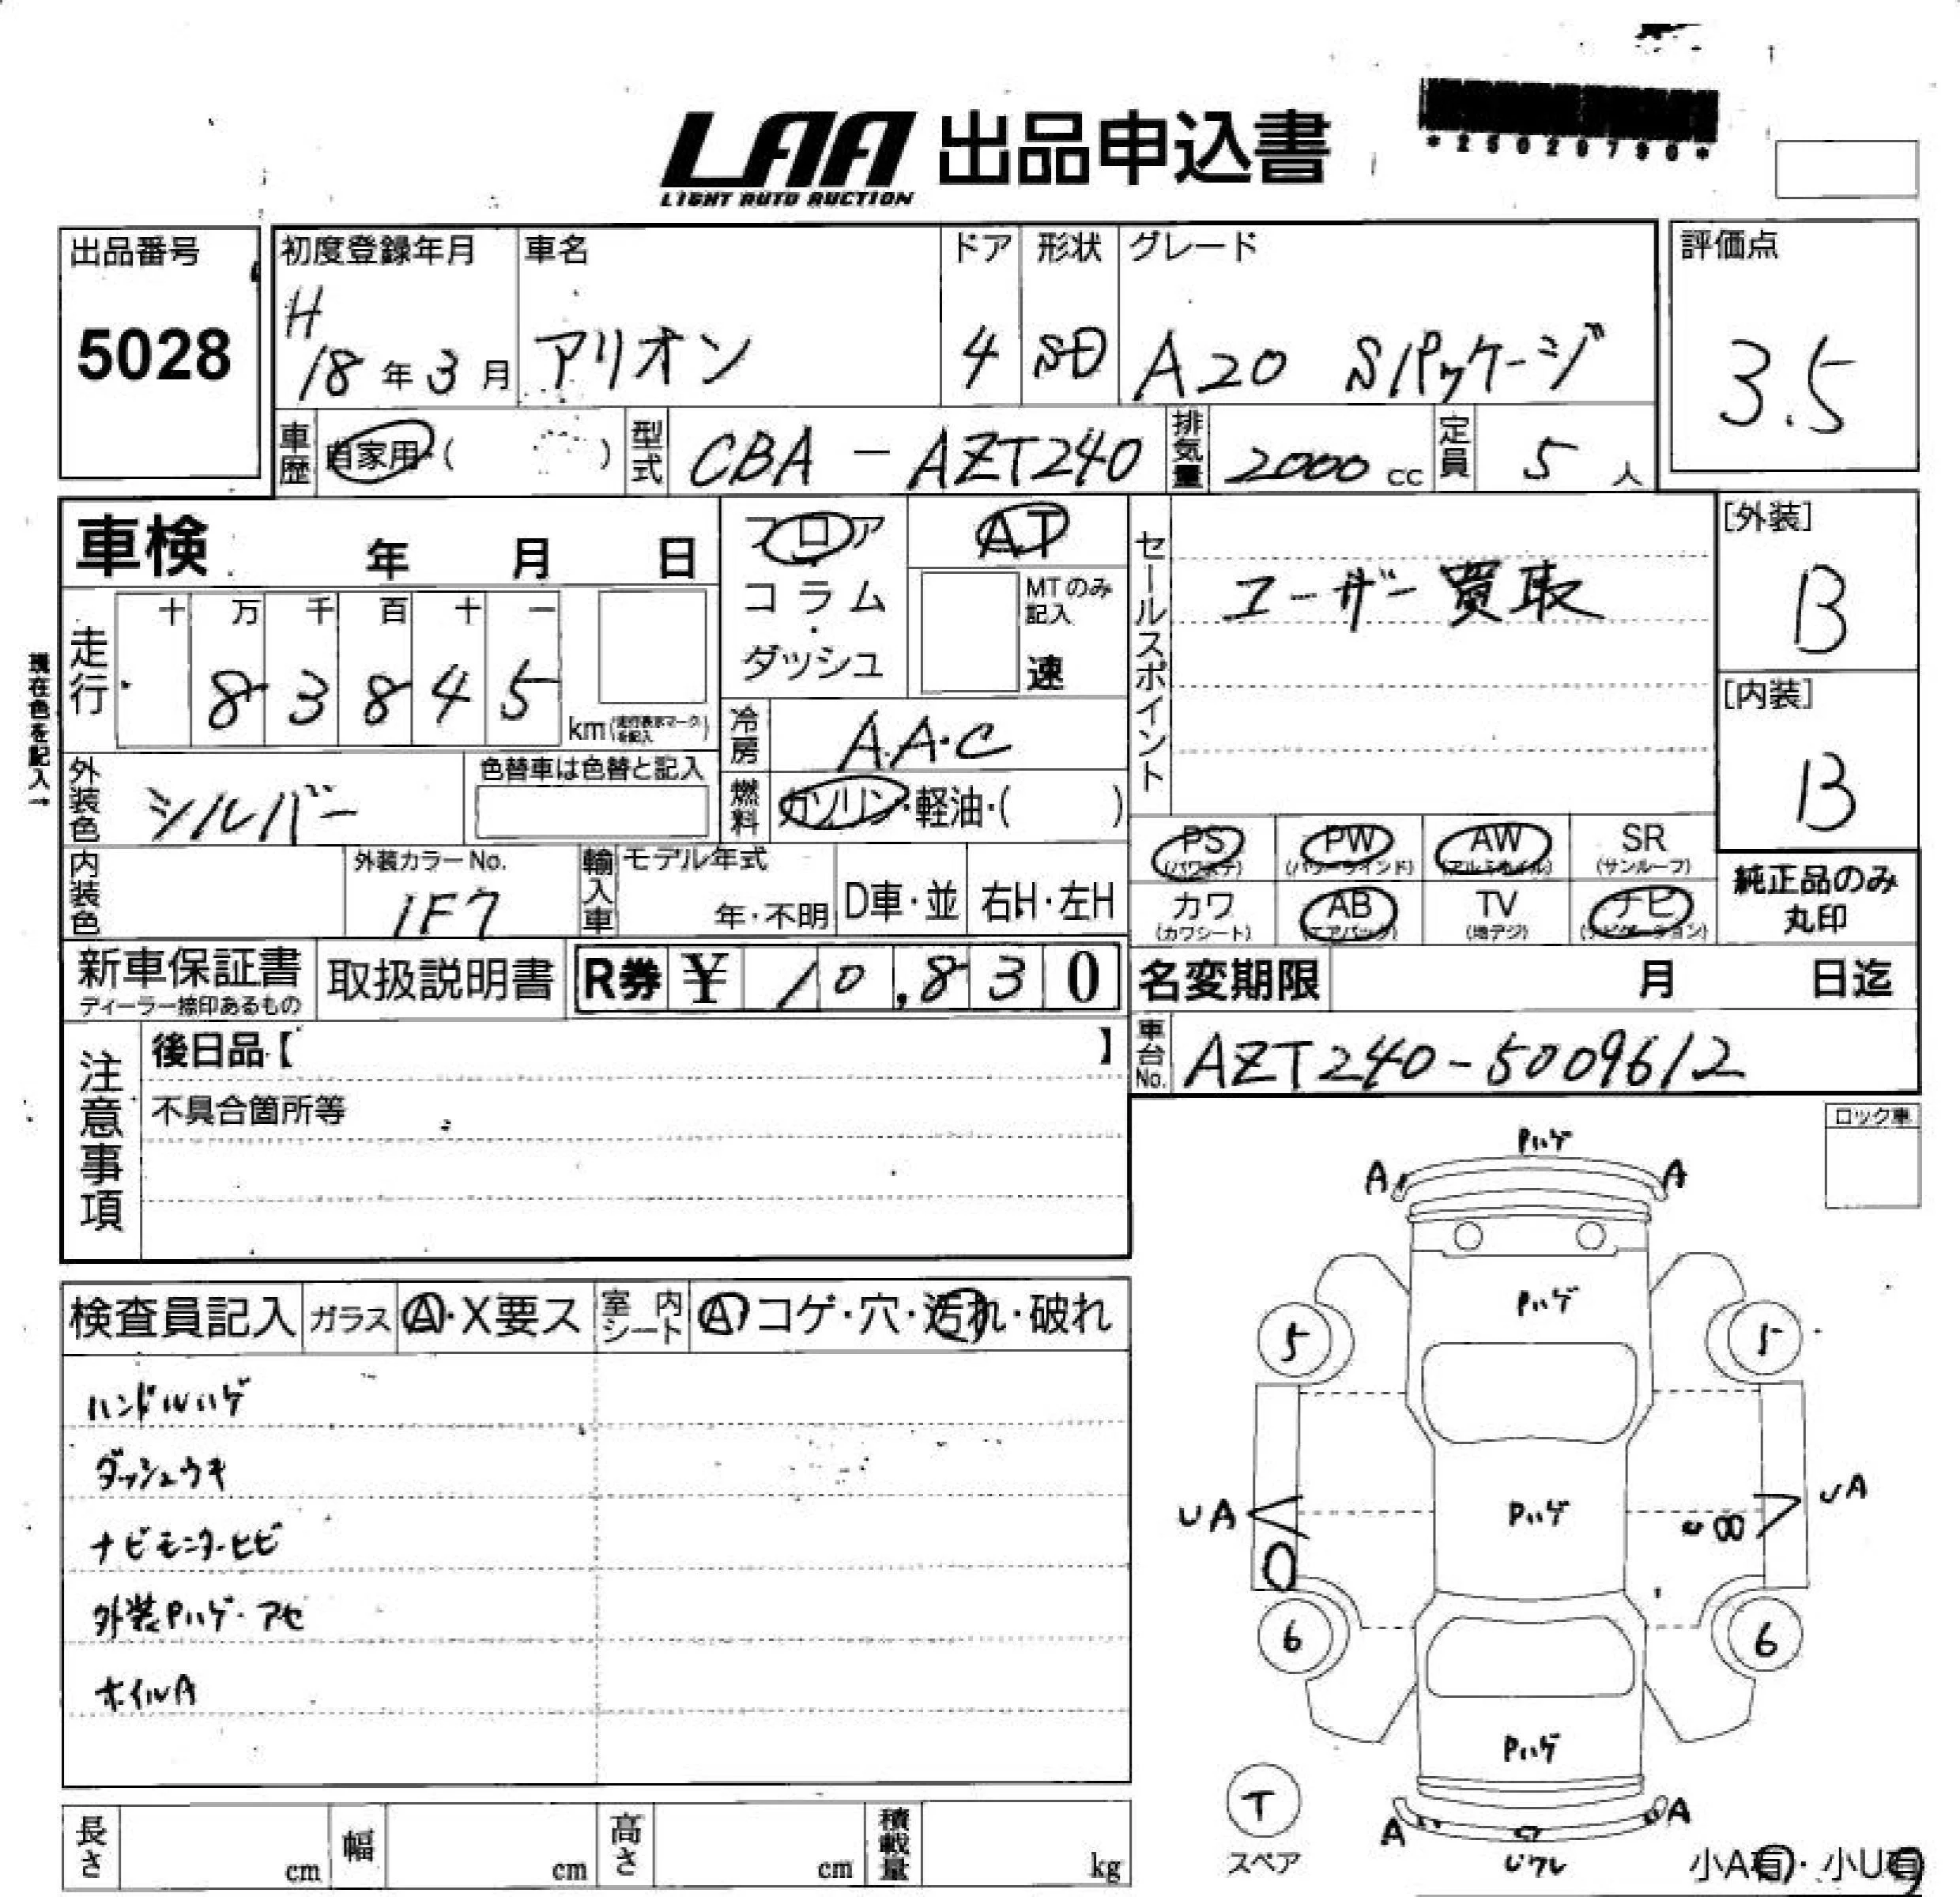 LAA 出品申込書
LIGHT AUTO AUCTION
出品番号
5028
初度登録年月
H
18年3月
車名
アリオン
ドア
4
形状
SD
グレード
A20 Sパッケージ
評価点
3.5
車歴
自家用・( )
型式
CBA-AZT240
排気量
2000cc
定員
5人
車検 年 月 日
フロア
コラム
・
ダッシュ
AT
MTのみ
記入
速
セールスポイント
ユーザー買取
[外装]
B
[内装]
B
現在色を記入→
走行
十 万 千 百 十 一
8 3 8 4 5
km(走行表示マークを記入)
冷房
A.A.C
外装色
シルバー
色替車は色替と記入
燃料
ガソリン・軽油・( )
内装色
外装カラーNo.
1F7
輸入車
モデル年式
年・不明
D車・並
右H・左H
PS
(パワステ)
PW
(パワーウインド)
AW
(アルミホイル)
SR
(サンルーフ)
カワ
(カワシート)
AB
(エアバック)
TV
(地デジ)
ナビ
(ナビゲーション)
純正品のみ
丸印
新車保証書
ディーラー捺印あるもの
取扱説明書
R券 ¥ 10,830
名変期限 月 日迄
車台No.
AZT240-5009612
注意事項
後日品【 】
不具合箇所等
ロック車
検査員記入 ガラス A・X要ス 室内シート A コゲ・穴・汚れ・破れ
ハンドルハゲ
ダッシュウキ
ナビモニターヒビ
外装Pハゲ・アセ
ホイルA
Pハゲ
A A
Pハゲ
5 5
UA Pハゲ UA
6 6
Pハゲ
T
スペア
A A
小A有・小U有
長さ cm 幅 cm 高さ cm 積載量 kg